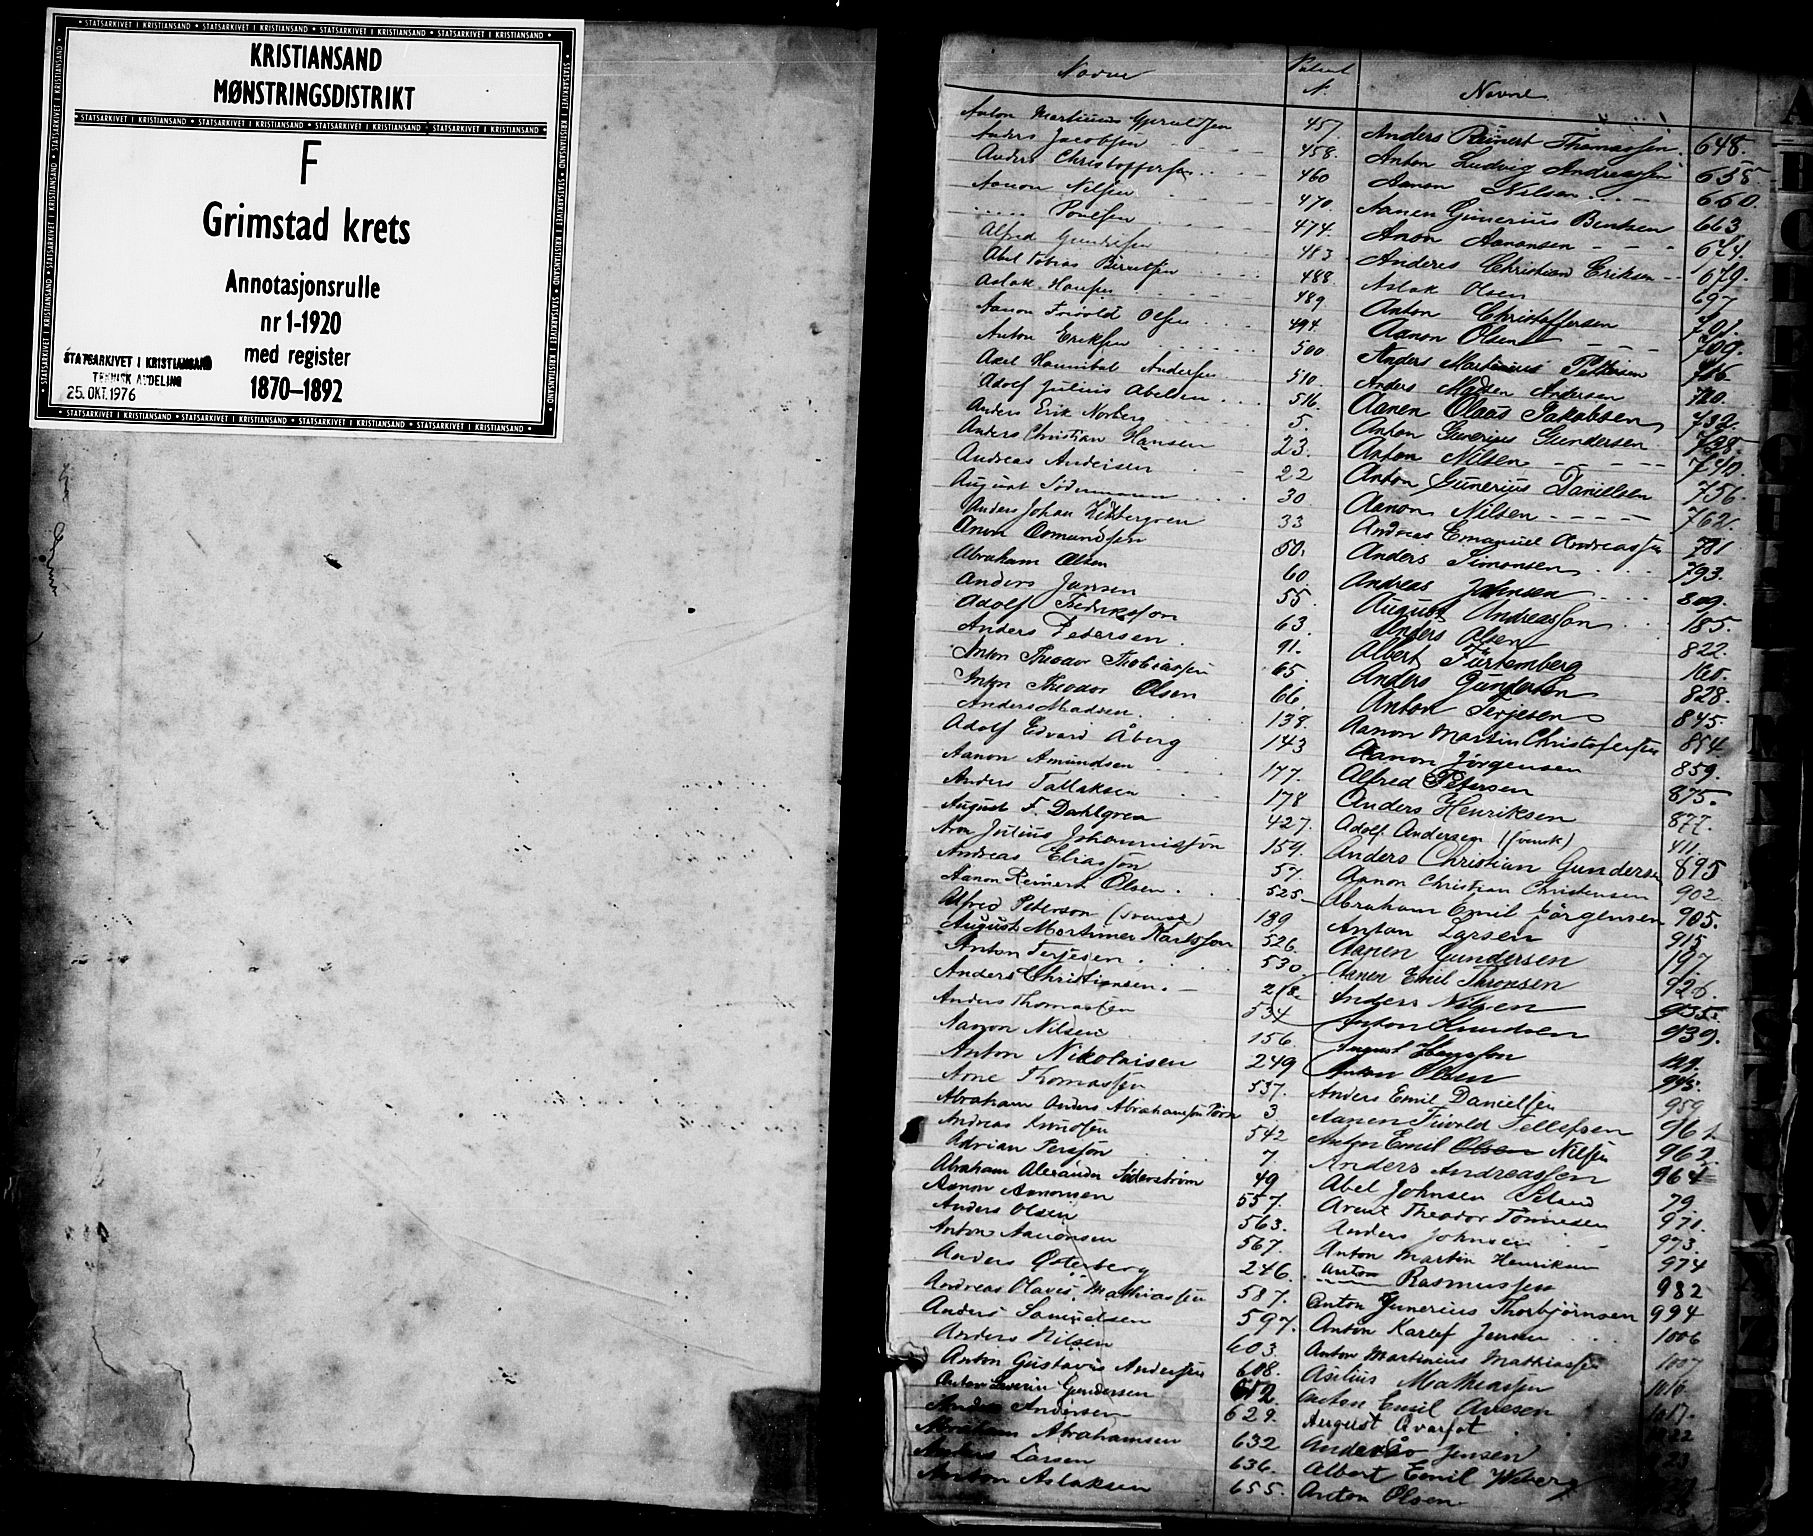 KRISTIANSAND
MØNSTRINGSDISTRIKT
F
Grimstad krets
Annotasjonsrulle
nr 1-1920
med register
1870-1892
STATSARKIVET I KRISTIANSAND
TEKNISK AVDELING
25. OKT. 1976
Navne
Anders Jacobsen 458.
Anders Christoffersen 460
Aanon Nilsen 470.
Alfred Gundersen 483
Aslak Hansen 489
Anton Eriksen 500
Axel Hannibal Andersen 510.
Adolf Julius Abelsen 516.
Anders Erik Norberg 5.
Anders Christian Hansen 23.
Andreas Andersen 22
August Södermann 30
Anon Osmundsen 50.
Abraham Olsen 60.
Anders Jansen 55.
Adolf Fredriksson 63.
Anders Petersen 91.
Anton Theodor Thobiassen 65.
Anton Theodor Olsen 66.
Anders Madsen 138.
Adolf Edvard Åberg 143
Aanon Amundsen 177.
Anders Tallaksen 178
August F. Dahlgren 427.
Aron Julius Johannisson 159.
Andreas Eliasson 57.
Aanon Reinert Olsen 525
Alfred Peterson (svensk) 189
August Mortimer Karlsson 526.
Anton Terjesen 530.
Anders Christiansen 218.
Anders Thomassen 534
Aanon Nilsen 156.
Anton Nikolaisen 249
Arne Thomassen 537.
Abraham Anders Abrahamsen 3
Andreas Knudsen 542
Adrian Persson 7
Abraham Alexander Söderström 49
Aanon Aanonsen 557.
Anders Olsen 563.
Anton Aanonsen 567.
Anders Østerberg 246.
Andreas Olavis Mathiassen 587.
Anders Samuelsen 597.
Anders Nilsen 603.
Anton Gustavis Andersen 608.
Anton Severin Gundersen 612.
Anders Andersen 629.
Abraham Abrahamsen 632
Anders Larsen 636.
Anton Aslaksen 655.
Navne
Anders Reinert Thomassen 648.
Anton Ludvig Andreassen 658.
Aanon Nilsen 660.
Aanen Gunerius Bentsen 663
Anon Aanonsen 674.
Anders Christian Eriksen 679.
Aslak Olsen 697
Anton Christoffersen 701.
Aanon Olsen 709.
Anders Martinius Pettersen 716
Anders Madsen Andersen 720.
Aanen Olaus Jakobsen 732.
Anton Gunerius Gundersen 738.
Anton Nilsen 740.
Anton Gunerius Danielsen 756.
Aanon Nilsen 762.
Andreas Emanuel Andreassen 781
Anders Simonsen 793.
Andreas Johnsen 809.
August Andreasson 185.
Anders Olsen 822.
Albert Fürtemberg 160.
Anders Gundersen 828.
Anton Terjesen 845.
Aanon Martin Christofersen 854
Aanon Jörgensen 859.
Alfred Petersen 875.
Anders Henriksen 877.
Adolf Andersen (svensk) 411.
Anders Christian Gundersen 895
Aanon Christian Christensen 902
Abraham Emil Jörgensen 905.
Anton Larsen 915
Aanen Gundersen 197.
Aanen Emil Thronsen 926.
Anders Nilsen 935.
Anton Knudsen 939.
August Hansson
Anton Olsen 945.
Anders Emil Danielsen 959
Aanen Tivold Tellefsen 961
Anton Emil Olsen Nilsen 962
Anders Andreassen 964
Abel Johnsen 79.
Arent Theodor Tönnesen 971.
Anders Johnsen 973.
Anton Martin Henriksen 974
Anton Rasmussen 982
Anton Gunerius Thorbjörnsen 994
Anton Karlef Jensen 1006
Anton Martinius Mathiassen 1007
Asilius Mathiassen 1010.
Anton Emil Avesen 1017.
August Qvarfot
Anders Jensen
Albert Emil Weberg
Anton Olsen